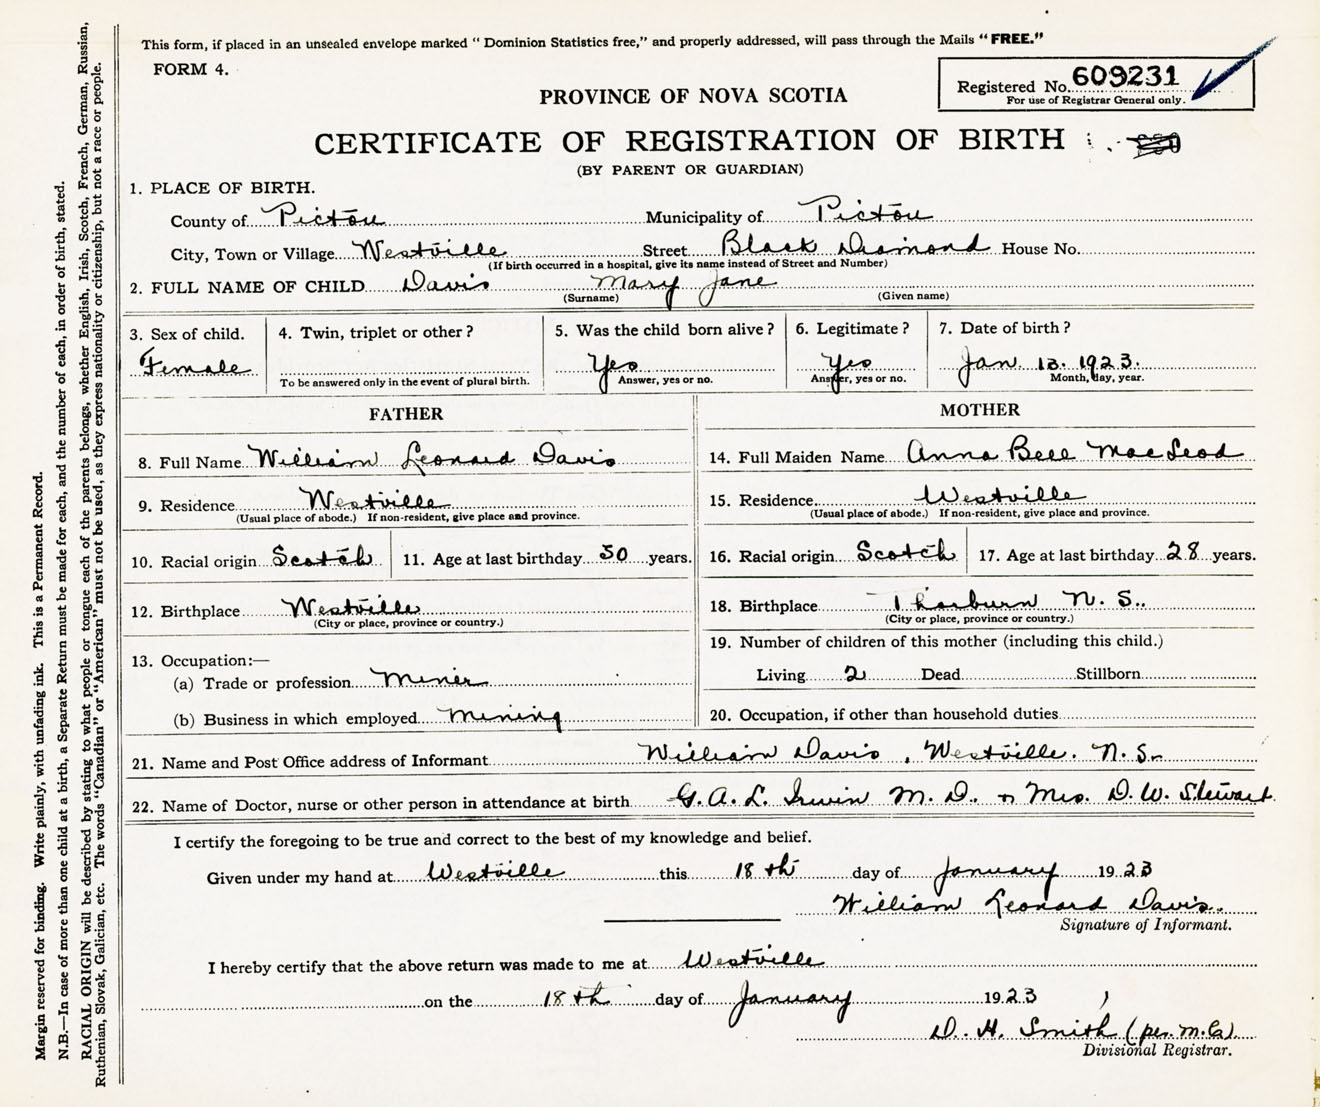 This form, if placed in an unsealed envelope marked “ Dominion Statistics free,” and properly addressed, will pass through the Mails “ FREE.”
FORM 4.
Registered No. 609231
For use of Registrar General only.
PROVINCE OF NOVA SCOTIA
CERTIFICATE OF REGISTRATION OF BIRTH
(BY PARENT OR GUARDIAN)
1. PLACE OF BIRTH.
County of Pictou Municipality of Pictou
City, Town or Village Westville Street Black Diamond House No.
(If birth occurred in a hospital, give its name instead of Street and Number)
2. FULL NAME OF CHILD Davis Mary Jane
(Surname) (Given name)
3. Sex of child. 4. Twin, triplet or other ? 5. Was the child born alive ? 6. Legitimate ? 7. Date of birth ?
Female Yes Yes Jan. 13. 1923.
To be answered only in the event of plural birth. Answer, yes or no. Answer, yes or no. Month, day, year.
FATHER
8. Full Name William Leonard Davis
9. Residence Westville
(Usual place of abode.) If non-resident, give place and province.
10. Racial origin Scotch 11. Age at last birthday 30 years.
12. Birthplace Westville
(City or place, province or country.)
13. Occupation:—
(a) Trade or profession Miner
(b) Business in which employed Mining
MOTHER
14. Full Maiden Name Anna Bell MacLeod
15. Residence Westville
(Usual place of abode.) If non-resident, give place and province.
16. Racial origin Scotch 17. Age at last birthday 28 years.
18. Birthplace Thorburn N. S.
(City or place, province or country.)
19. Number of children of this mother (including this child.)
Living 2 Dead Stillborn
20. Occupation, if other than household duties
21. Name and Post Office address of Informant William Davis, Westville. N. S.
22. Name of Doctor, nurse or other person in attendance at birth G. A. L. Irwin M. D. Mrs. D. W. Stewart.
I certify the foregoing to be true and correct to the best of my knowledge and belief.
Given under my hand at Westville this 18th day of January 1923
William Leonard Davis.
Signature of Informant.
I hereby certify that the above return was made to me at Westville
on the 18th day of January 1923
D. H. Smith (per. M.G.)
Divisional Registrar.
Margin reserved for binding. Write plainly, with unfading ink. This is a Permanent Record.
N.B.—In case of more than one child at a birth, a Separate Return must be made for each, and the number of each, in order of birth, stated.
RACIAL ORIGIN will be described by stating to what people or tongue each of the parents belongs, whether English, Irish, Scotch, French, German, Russian,
Ruthenian, Slovak, Galician, etc. The words “Canadian” or “American” must not be used, as they express nationality or citizenship, but not a race or people.